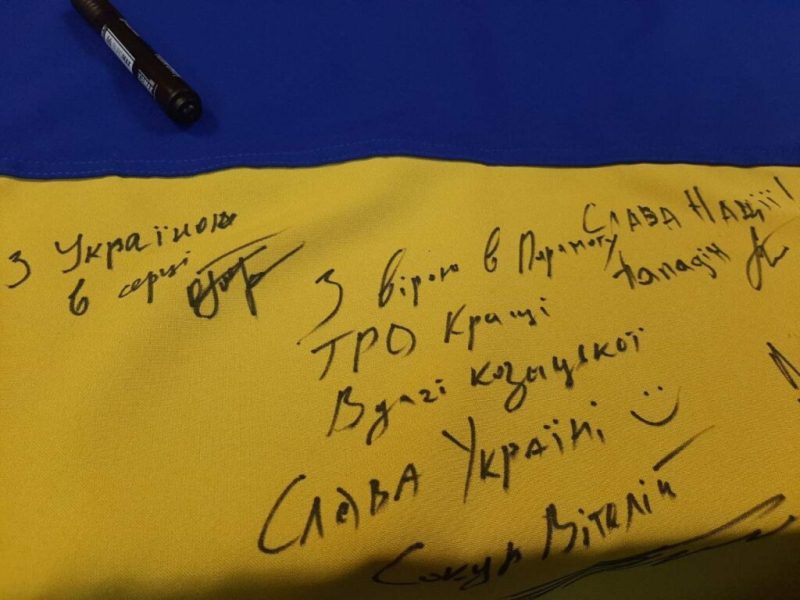 З Україною
в серці
Слава Нації!
З вірою в Перемогу
ТРО Кращі
Вдачі козацької
Слава Україні
Сокур Віталій